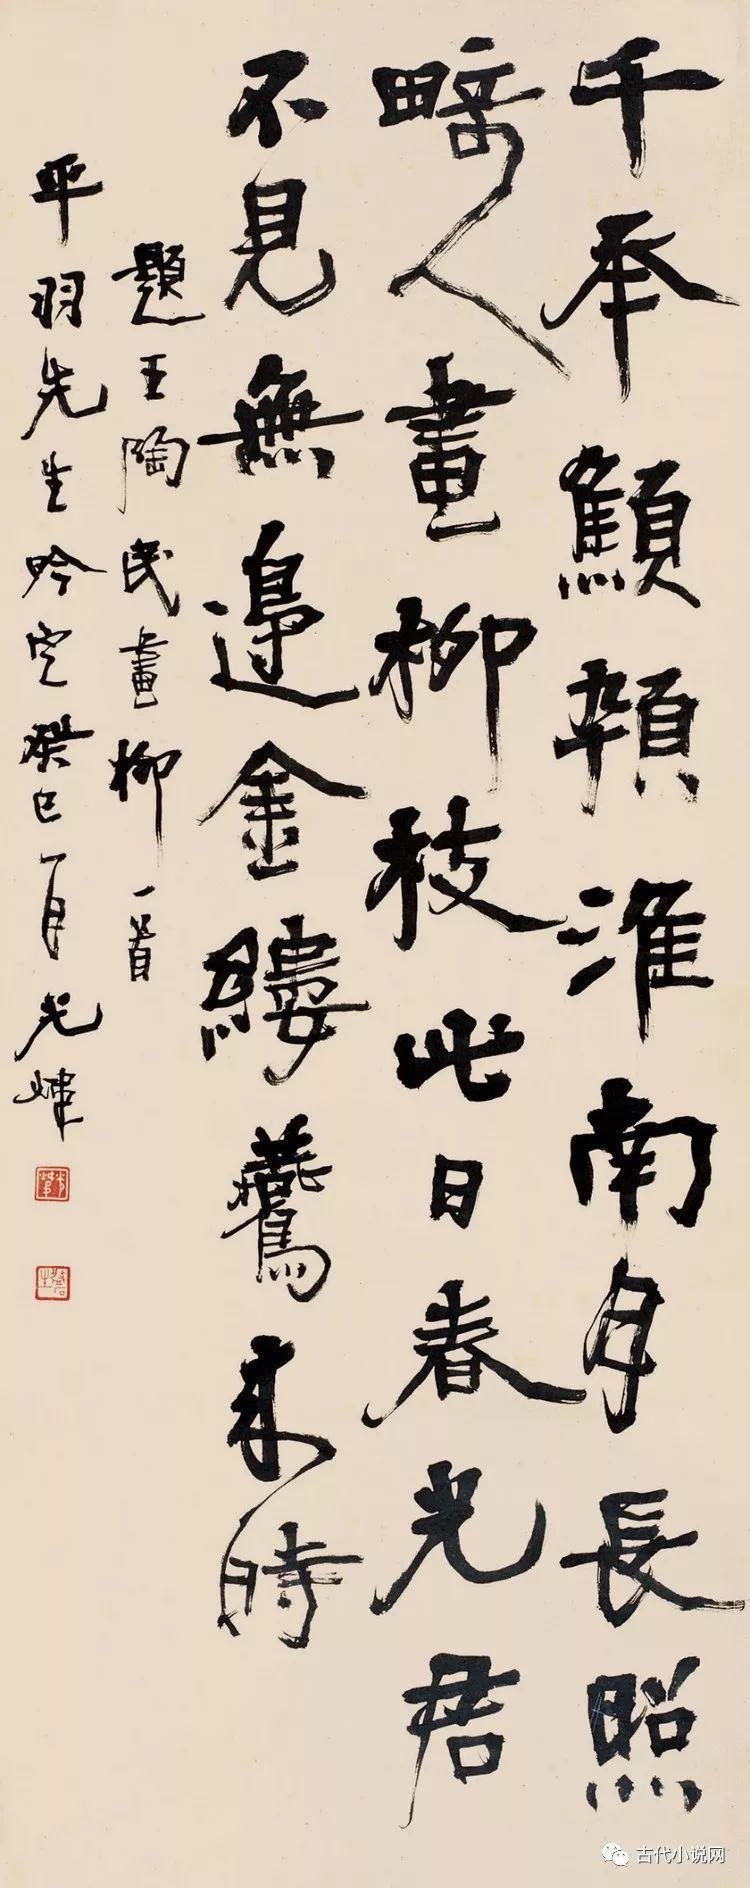 千年顦顇淮南月長照
畸人畫柳枝此日春光君
不見無邊金縷鷰來時
題王陶民畫柳一首
平羽先生吟定癸巳一月光煒
古代小说网